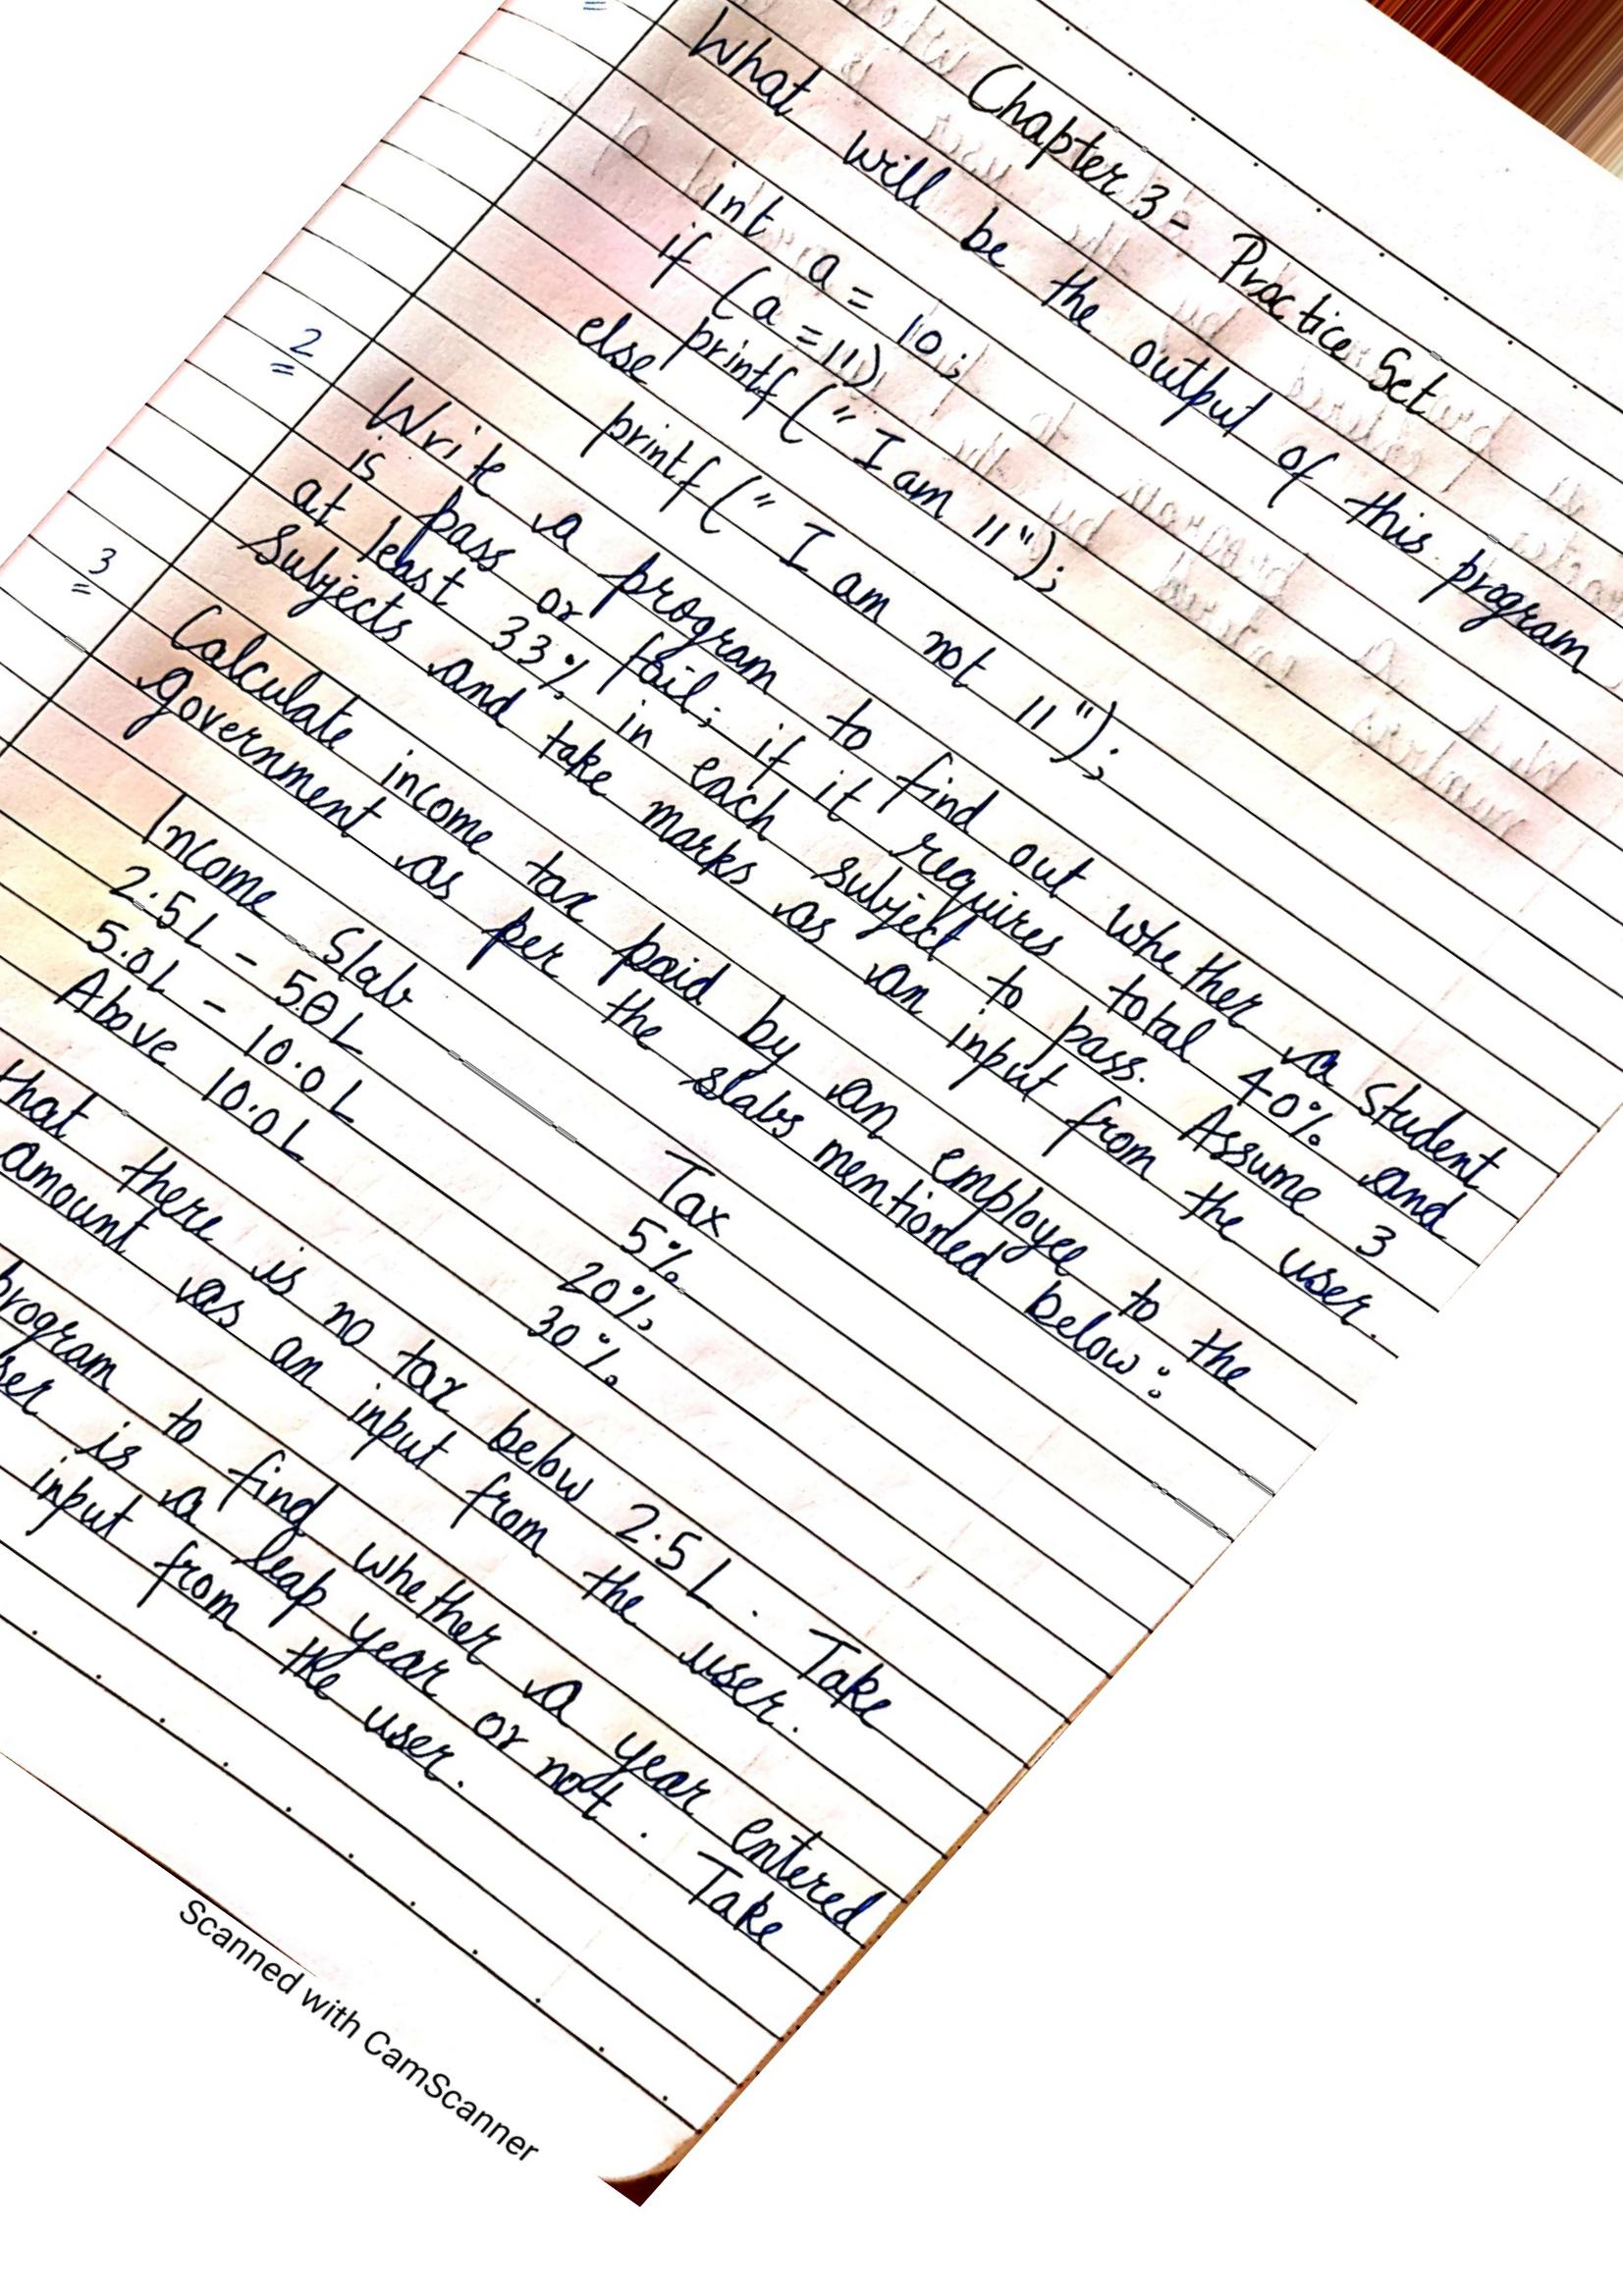 Chapter 3 - Practice Set
What will be the output of this program
int a = 10;
if (a = 11)
printf (" I am 11");
else
printf (" I am not 11");
2
Write a program to find out whether a Student
is pass or fail; if it requires total 40% and
at least 33% in each subject to pass. Assume 3
Subjects and take marks as an input from the user.
3
Calculate income tax paid by an employee to the
government as per the slabs mentioned below:
Income Slab Tax
2.5L - 5.0L 5%
5.0L - 10.0L 20%
Above 10.0L 30%
that there is no tax below 2.5L. Take
amount as an input from the user.
program to find whether a year entered
is a leap year or not. Take
input from the user.
Scanned with CamScanner